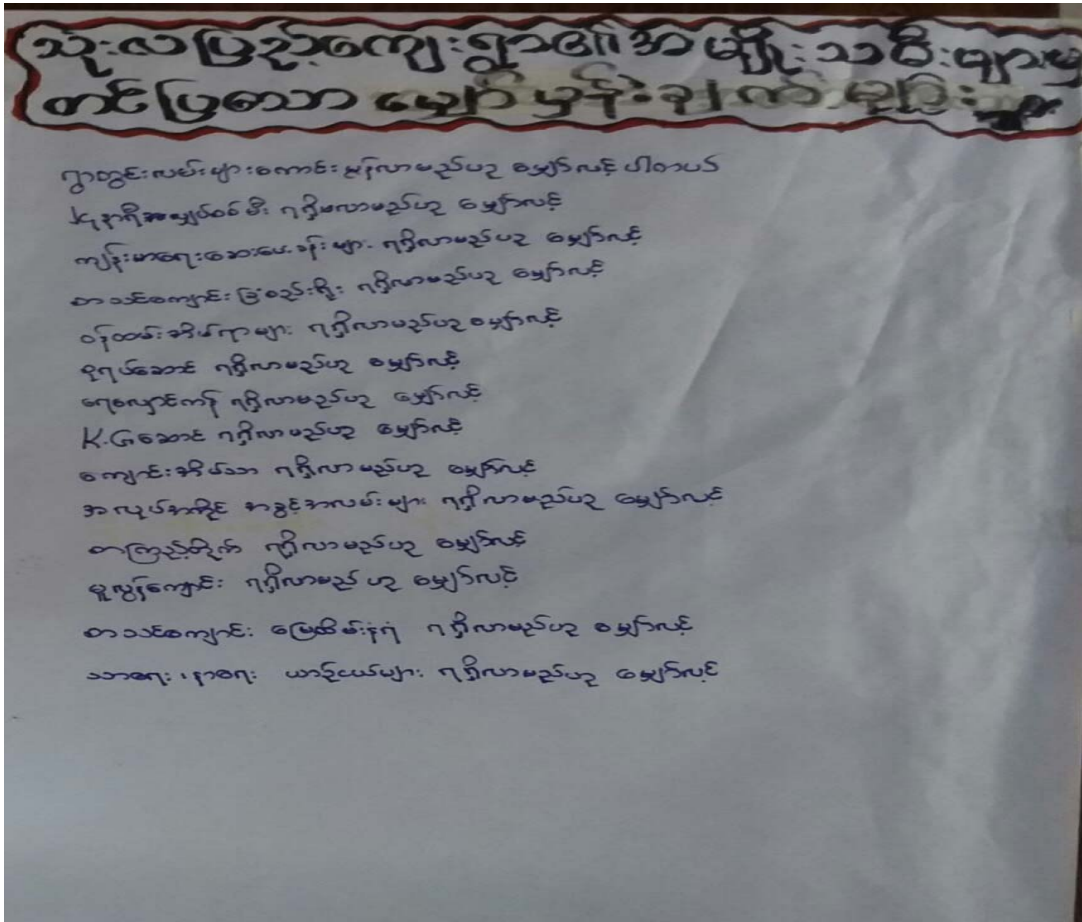 သုံးလပြည့်ကျေးရွာ၏အမျိုးသမီးများမှ
တင်ပြသော မျှော်မှန်းချက် များ
ရွာတွင်းလမ်းများကောင်းမွန်လာမည်ဟု မျှော်လင့်ပါတယ်
နာရီ မီး ရရှိလာမည်ဟု မျှော်လင့်
ကျန်းမာရေးဆေးပေးခန်းများ ရရှိလာမည်ဟု မျှော်လင့်
စာသင်ကျောင်းခြံစည်းရိုး ရရှိလာမည်ဟု မျှော်လင့်
ဝန်ထမ်းအိမ်ရာများ ရရှိလာမည်ဟု မျှော်လင့်
ဇရပ်ဆောင် ရရှိလာမည်ဟု မျှော်လင့်
ရေလှောင်ကန် ရရှိလာမည်ဟု မျှော်လင့်
K.Gဆောင် ရရှိလာမည်ဟု မျှော်လင့်
ကျောင်းအိမ်သာ ရရှိလာမည်ဟု မျှော်လင့်
အလုပ်အကိုင် အခွင့်အလမ်းများ ရရှိလာမည်ဟု မျှော်လင့်
စာကြည့်တိုက် ရရှိလာမည်ဟု မျှော်လင့်
မူလွန်ကျောင်း ရရှိလာမည်ဟု မျှော်လင့်
စာသင်ကျောင်း မြေထိန်းနံရံ ရရှိလာမည်ဟု မျှော်လင့်
သာရေး၊နာရေး ယာဉ်ငယ်များ ရရှိလာမည်ဟု မျှော်လင့်